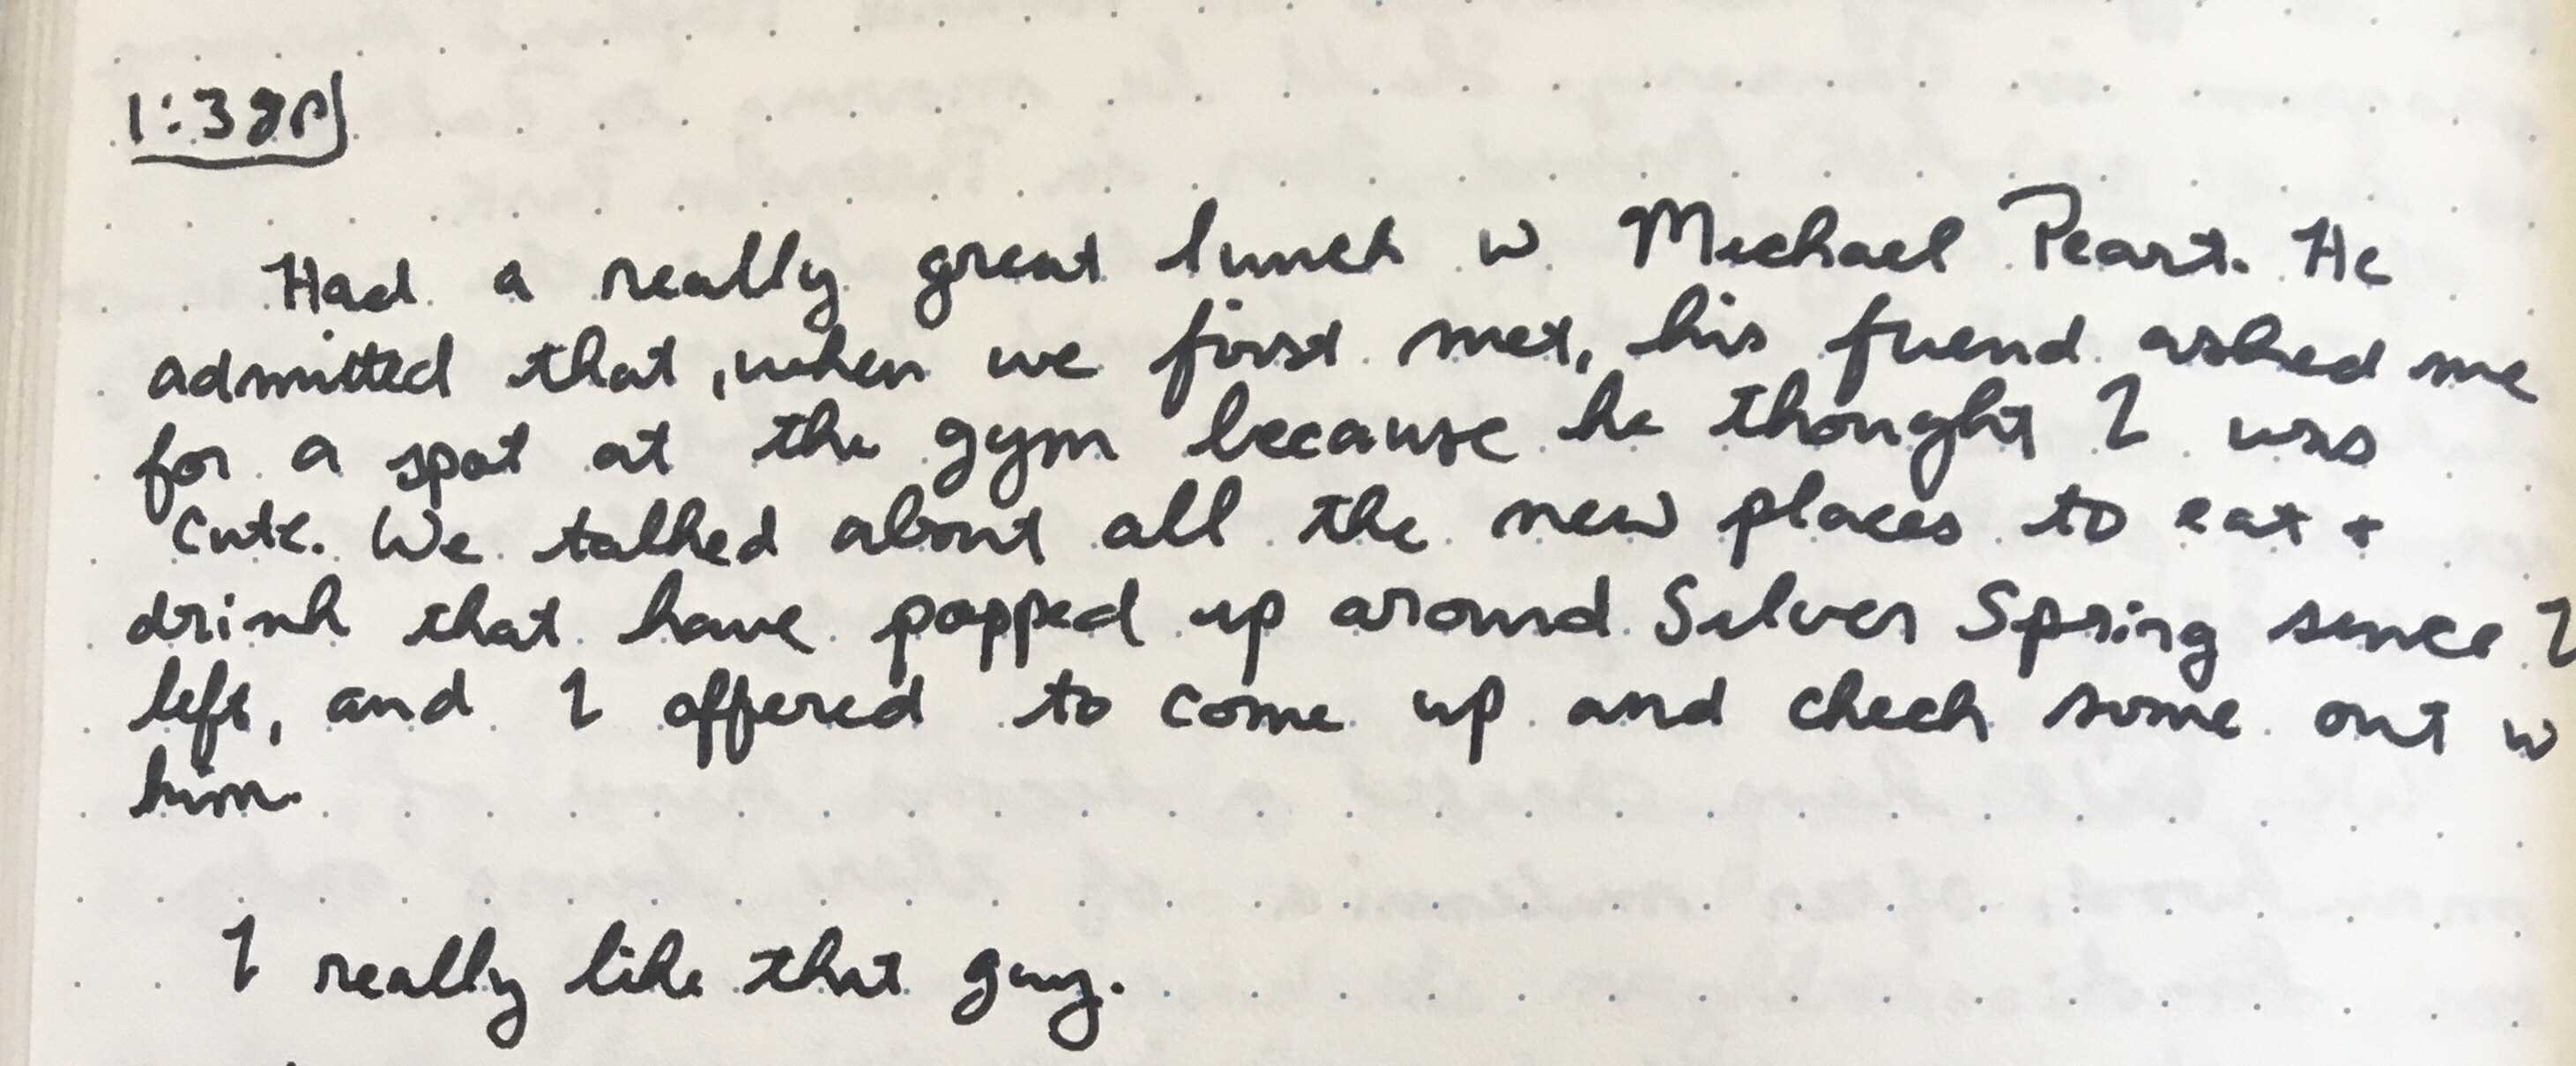 1:38p
Had a really great lunch w Michael Peart. He
admitted that, when we first met, his friend asked me
for a spot at the gym because he thought I was
cute. We talked about all the new places to eat +
drink that have popped up around Silver Spring since I
left, and I offered to come up and check some out w
him.
I really like that guy.